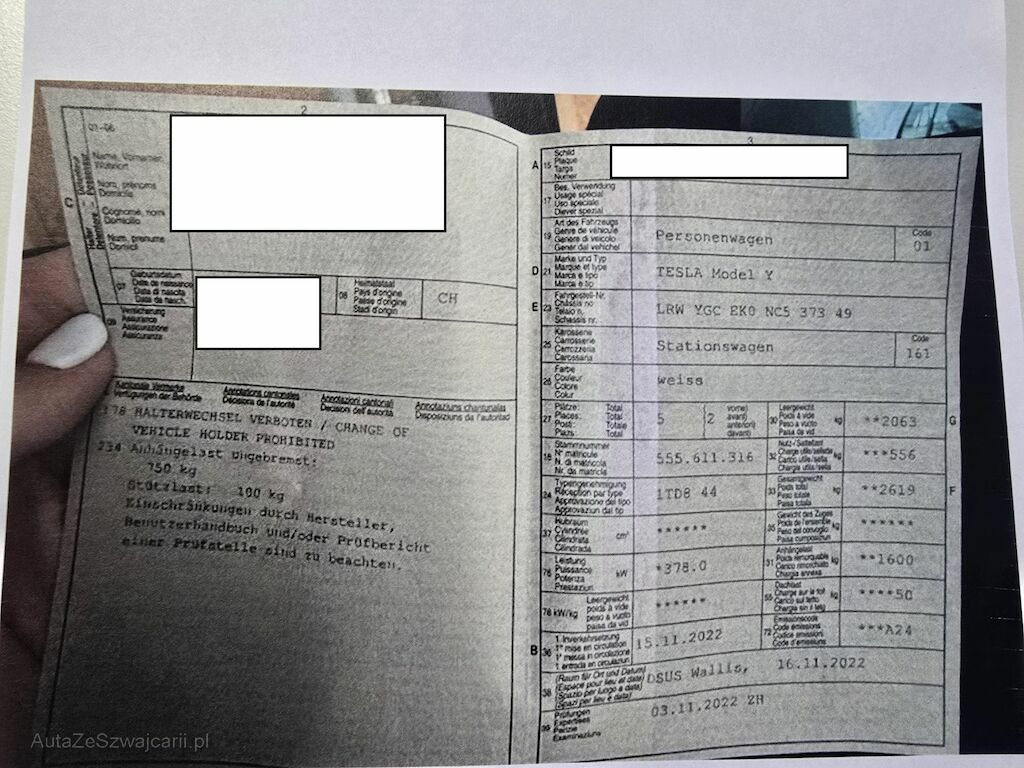 2
01-06
C
Halter Détenteur
Name, Vornamen
Wohnort
Nom, prénoms
Domicile
Cognome, nomi
Domicilio
Num, prenums
Domicil
07
Geburtsdatum
Date de naissance
Data di nascita
Data da nasch.
08
Heimatstaat
Pays d'origine
Paese d'origine
Stadi d'origin
CH
09
Versicherung
Assurance
Assicurazione
Assicuranza
Kantonale Vermerke
Verfügungen der Behörde
Annotations cantonales
Décisions de l'autorité
Annotazioni cantonali
Decisioni dell'autorità
Annotaziuns chantunalas
Disposiziuns da l'autoritad
178 HALTERWECHSEL VERBOTEN / CHANGE OF
VEHICLE HOLDER PROHIBITED
234 Anhängelast ungebremst:
750 kg
Stützlast: 100 kg
Einschränkungen durch Hersteller,
Benutzerhandbuch und/oder Prüfbericht
einer Prüfstelle sind zu beachten.
3
A 15
Schild
Plaque
Targa
Numer
17
Bes. Verwendung
Usage spécial
Uso speciale
Diever spezial
19
Art des Fahrzeugs
Genre de véhicule
Genere di veicolo
Gener dal vehichel
Personenwagen
Code
01
D 21
Marke und Typ
Marque et type
Marca e tipo
Marca e tip
TESLA Model Y
E 23
Fahrgestell-Nr.
Châssis no
Telaio n.
Schassis nr.
LRW YGC EK0 NC5 373 49
25
Karosserie
Carrosserie
Carrozzeria
Carossaria
Stationswagen
Code
161
26
Farbe
Couleur
Colore
Colur
weiss
27
Plätze: Total
Places: Total
Posti: Totale
Plazs: Total
5
2
vorne)
avant)
anteriori)
davant)
30
Leergewicht
Poids à vide
Peso a vuoto
Paisa da vid
kg
**2063
G
18
Stammnummer
N° matricule
N. di matricola
Nr. da matricla
555.611.316
32
Nutz-/Sattellast
Charge utile/sellette
Carico utile/sella
Chargia utila/sella
kg
***556
24
Typengenehmigung
Réception par type
Approvazione del tipo
Approvaziun dal tip
1TD8 44
33
Gesamtgewicht
Poids total
Peso totale
Paisa totala
kg
**2619
F
37
Hubraum
Cylindrée
Cilindrata
Cilindrada
cm³
******
35
Gewicht des Zuges
Poids de l'ensemble
Peso del convoglio
Paisa cumposiziun
kg
******
76
Leistung
Puissance
Potenza
Prestaziun
kW
*378.0
31
Anhängelast
Poids remorquable
Carico rimorchiato
Chargia annexa
kg
**1600
78 kW/kg
Leergewicht
poids à vide
peso a vuoto
paisa da vid
******
55
Dachlast
Charge sur le toit
Carico sul tetto
Chargia sin il tetg
kg
****50
B 36
1. Inverkehrsetzung
1re mise en circulation
1a messa in circolazione
1. entrada en circulaziun
15.11.2022
72
Emissionscode
Code émissions
Codice emissioni
Code d'emissiuns
***A24
38
(Raum für Ort und Datum)
(Espace pour lieu et date)
(Spazio per luogo e data)
(Spazi per lieu e data)
DSUS Wallis, 16.11.2022
39
Prüfungen
Expertises
Perizie
Examinaziuns
03.11.2022 ZH
AutaZeSzwajcarii.pl